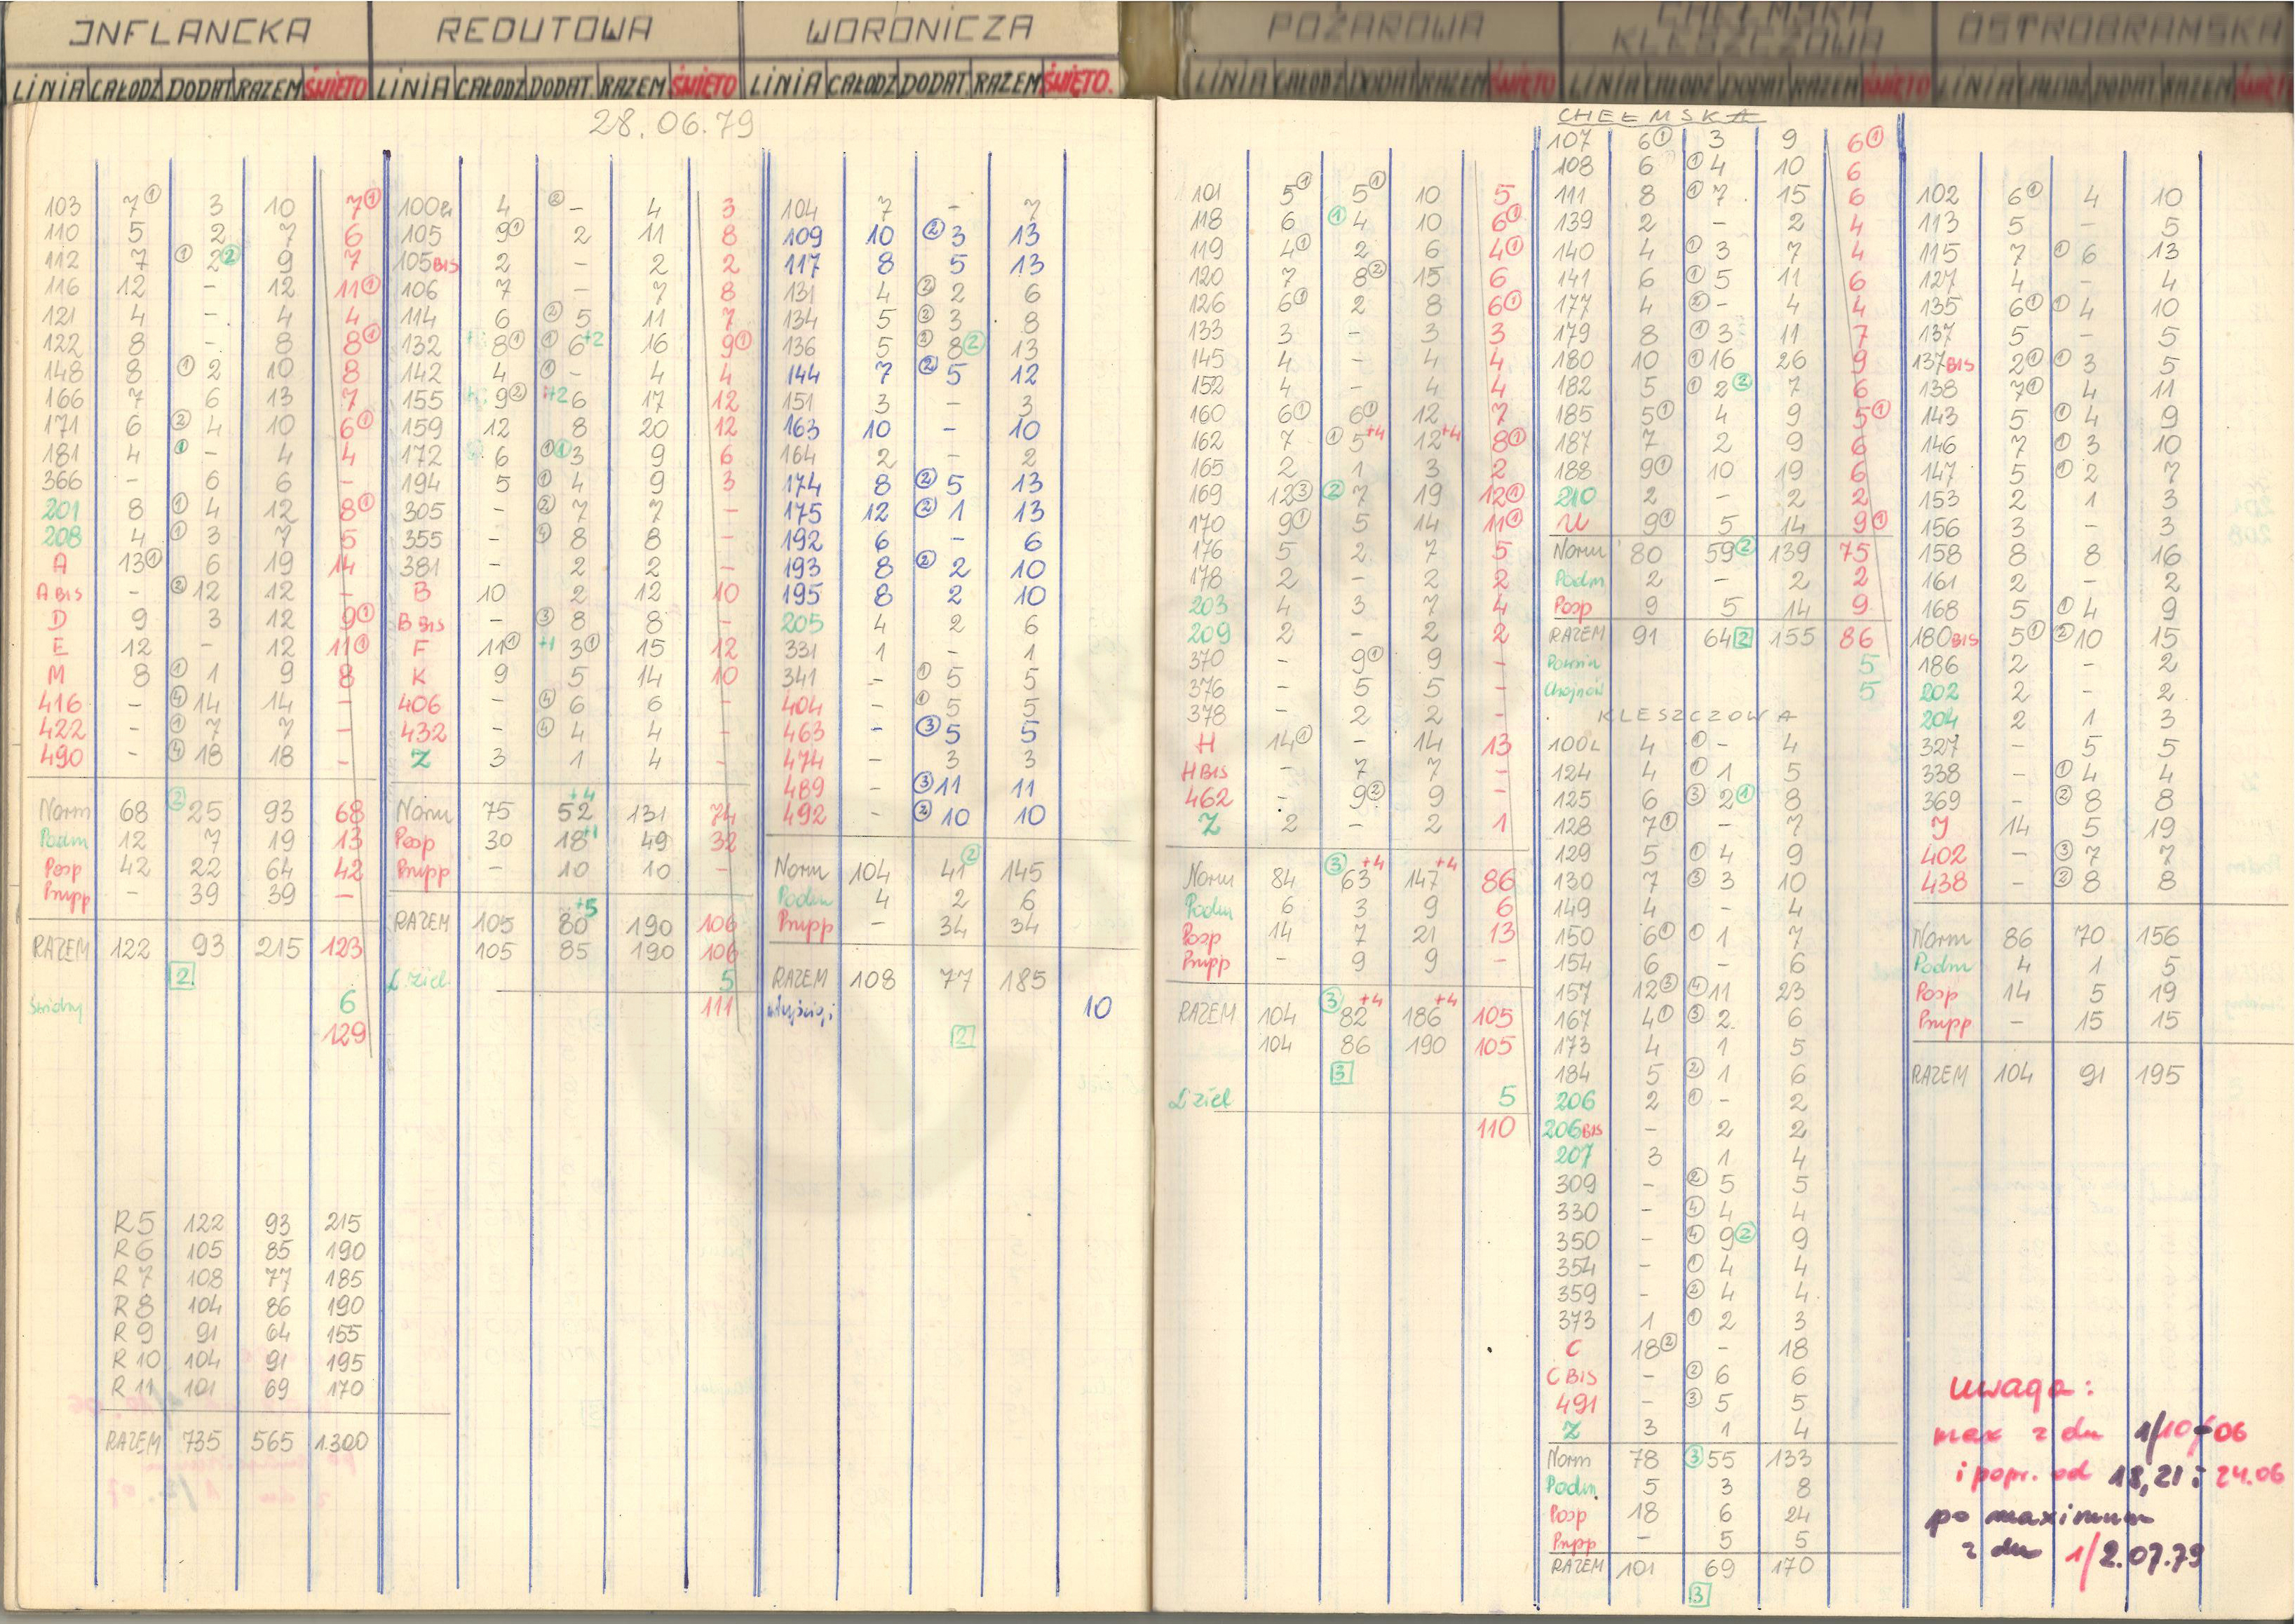 INFLANCKA
LINIA CAŁODZ DODAT RAZEM ŚWIĘTO
28.06.79
103 7① 3 10 7①
110 5 2 7 6
112 7 ① 2② 9 7
116 12 - 12 11①
121 4 - 4 4
122 8 - 8 8①
148 8 ① 2 10 8
166 7 6 13 7
171 6 ② 4 10 6①
181 4 ① - 4 4
366 - 6 6 -
201 8 ① 4 12 8①
208 4 ① 3 7 5
A 13① 6 19 14
A BIS - ② 12 12 -
D 9 3 12 9①
E 12 - 12 11①
M 8 ① 1 9 8
416 - ④ 14 14 -
422 - ① 7 7 -
490 - ④ 18 18 -
Norm 68 ② 25 93 68
Podm 12 7 19 13
Posp 42 22 64 42
Pnpp - 39 39 -
RAZEM 122 93 215 123
2
6
129
R 5 122 93 215
R 6 105 85 190
R 7 108 77 185
R 8 104 86 190
R 9 91 64 155
R 10 104 91 195
R 11 101 69 170
RAZEM 735 565 1.300
REDUTOWA
LINIA CAŁODZ DODAT. RAZEM ŚWIĘTO
100 4 ② - 4 3
105 9① 2 11 8
105 BIS 2 - 2 2
106 7 - 7 8
114 6 ② 5 11 7
132 8① ① 6+2 16 9①
142 4 ① - 4 4
155 9② +2 6 17 12
159 12 8 20 12
172 6 ①① 3 9 6
194 5 ① 4 9 3
305 - ② 7 7 -
355 - ④ 8 8 -
381 - 2 2 -
B 10 2 12 10
B BIS - ③ 8 8 -
F 11① +1 3① 15 12
K 9 5 14 10
406 - ④ 6 6 -
432 - ④ 4 4 -
Z 3 1 4 -
+4
Norm 75 52 131 74
Posp 30 18+1 49 32
Pnpp - 10 10 -
+5
RAZEM 105 80 190 106
105 85 190 106
L. ziel. 5
111
WORONICZA
LINIA CAŁODZ DODAT. RAZEM ŚWIĘTO.
104 7 - 7
109 10 ② 3 13
117 8 5 13
131 4 ② 2 6
134 5 ② 3 8
136 5 ② 8② 13
144 7 ② 5 12
151 3 - 3
163 10 - 10
164 2 - 2
174 8 ② 5 13
175 12 ② 1 13
192 6 - 6
193 8 ② 2 10
195 8 2 10
205 4 2 6
331 1 - 1
341 - ① 5 5
404 - ① 5 5
463 - ③ 5 5
474 - 3 3
489 - ③ 11 11
492 - ② 10 10
Norm 104 41② 145
Podm 4 2 6
Pnpp - 34 34
RAZEM 108 77 185
wyścigi 10
2
POŻAROWA
LINIA CAŁODZ DODAT RAZEM ŚWIĘTO
101 5① 5① 10 5
118 6 ① 4 10 6①
119 4① 2 6 4①
120 7 8② 15 6
126 6① 2 8 6①
133 3 - 3 3
145 4 - 4 4
152 4 - 4 4
160 6① 6① 12 7
162 7 ① 5+4 12+4 8①
165 2 1 3 2
169 12③ ② 7 19 12①
170 9① 5 14 11①
176 5 2 7 5
178 2 - 2 2
203 4 3 7 4
209 2 - 2 2
370 - 9① 9 -
376 - 5 5 -
378 - 2 2 -
H 14① - 14 13
H BIS - 7 7 -
462 - 9② 9 -
Z 2 - 2 1
Norm 84 ③ 63+4 147+4 86
Podm 6 3 9 6
Posp 14 7 21 13
Pnpp - 9 9 -
RAZEM 104 ③ 82+4 186+4 105
104 86 190 105
3
L. ziel 5
110
CHEŁMSKA
KLESZCZOWA
LINIA CAŁODZ DODAT RAZEM ŚWIĘTO
CHEŁMSKA
107 6① 3 9 6①
108 6 ① 4 10 6
111 8 ① 7 15 6
139 2 - 2 4
140 4 ① 3 7 4
141 6 ① 5 11 6
177 4 ② - 4 4
179 8 ① 3 11 7
180 10 ① 16 26 9
182 5 ① 2② 7 6
185 5① 4 9 5①
187 7 2 9 6
188 9① 10 19 6
210 2 - 2 2
U 9① 5 14 9①
Norm 80 59② 139 75
Podm 2 - 2 2
Posp 9 5 14 9
RAZEM 91 64 2 155 86
Powsin 5
Chojnów 5
KLESZCZOWA
100L 4 ① - 4
124 4 ① 1 5
125 6 ③ 2① 8
128 7① - 7
129 5 ① 4 9
130 7 ③ 3 10
149 4 - 4
150 6① ① 1 7
154 6 - 6
157 12③ ④ 11 23
167 4① ③ 2 6
173 4 1 5
184 5 ② 1 6
206 2 ① - 2
206 BIS - 2 2
207 3 1 4
309 - ② 5 5
330 - ④ 4 4
350 - ④ 9② 9
354 - ① 4 4
359 - ② 4 4
373 1 ① 2 3
C 18② - 18
C BIS - ② 6 6
491 - ③ 5 5
Z 3 1 4
Norm 78 ③ 55 133
Podm 5 3 8
Posp 18 6 24
Pnpp - 5 5
RAZEM 101 69 170
3
OSTROBRAMSKA
LINIA CAŁODZ DODAT RAZEM ŚWIĘT
102 6① 4 10
113 5 - 5
115 7 ① 6 13
127 4 - 4
135 6① ① 4 10
137 5 - 5
137 BIS 2① ① 3 5
138 7① 4 11
143 5 ① 4 9
146 7 ① 3 10
147 5 ① 2 7
153 2 1 3
156 3 - 3
158 8 8 16
161 2 - 2
168 5 ① 4 9
180 BIS 5① ② 10 15
186 2 - 2
202 2 - 2
204 2 1 3
327 - 5 5
338 - ① 4 4
369 - ② 8 8
J 14 5 19
402 - ③ 7 7
438 - ② 8 8
Norm 86 70 156
Podm 4 1 5
Posp 14 5 19
Pnpp - 15 15
RAZEM 104 91 195
uwaga:
max z dn 1/10-06
i popr. od 18, 21 i 24.06
po maximum
z dn 1/2.07.79